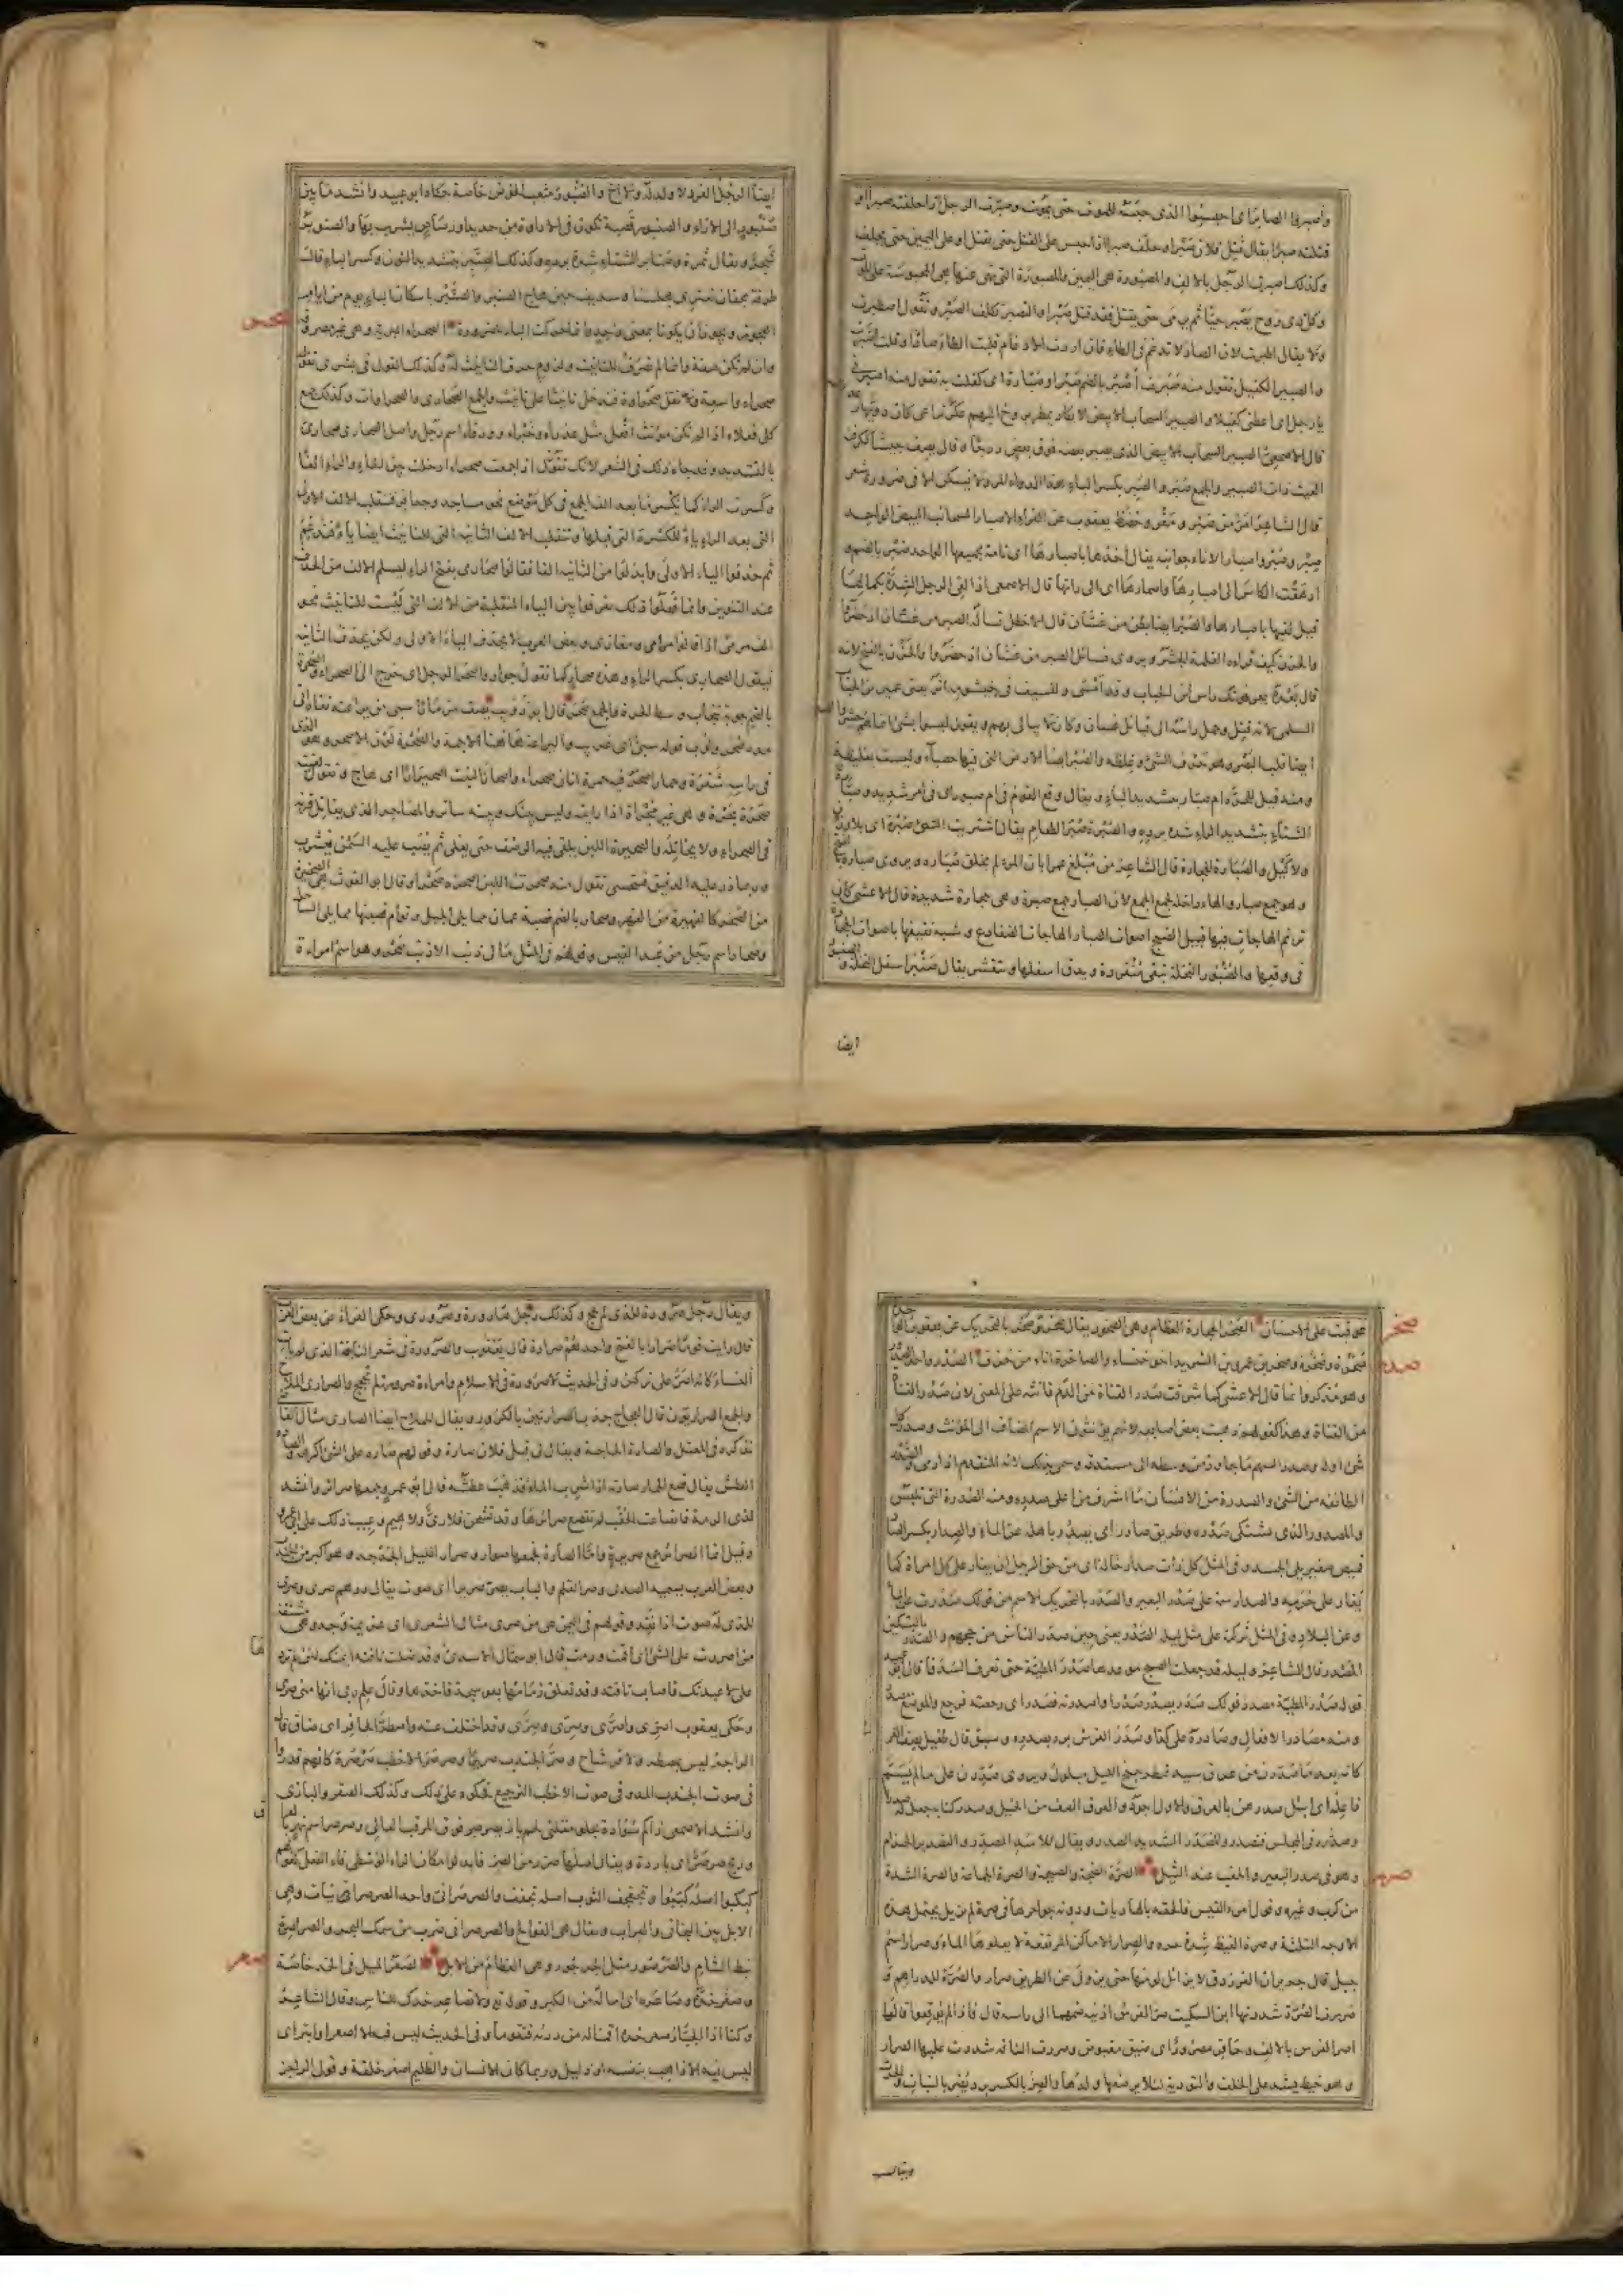 واصبروا الصابر اى احبسوا الذى حبسه للموت حتى يموت وصبرت الرجل اذا حلفته صبرا او
قتلته صبرا يقال قتل فلان صبرا وحلف صبرا اذا حبس على القتل حتى يقتل او على اليمين حتى يحلف
وكذلك اصبرت الرجل بالالف والمصبورة هى اليمين والمصبورة التى نهى عنها هى المحبوسة على الموت
وكل ذى روح يصبر حيا ثم يرمى حتى يقتل فقد قتل صبرا والتصبر تكلف الصبر وتقول اصطبرت
ولا يقال اطبرت لان الصاد لا تدغم فى الطاء فان اردت الادغام قلبت الطاء صادا وقلت اصبرت
والصبير الكفيل تقول منه صبرت اصبر بالضم صبرا وصبارة اى كفلت به تقول منه اصبرنى
يا رجل اى اعطنى كفيلا والصبير السحاب الابيض لا يكاد يمطر
قال الاصمعى الصبير السحاب الابيض الذى يصير بعضه فوق بعض درجا وقال يصف جيشا ككرفئة
الغيث ذات الصبير والجمع صبر والصبر بكسر الباء هذا الدواء المر ولا يسكن الا فى ضرورة الشعر
قال الشاعر امر من صبر ومقر وحظظ يعقوب عن الفراء الاصبار السحائب البيض الواحد
صبر وصبر واصبار الاناء جوانبه يقال اخذها باصبارها اى تامة بجميعها الواحد صبر بالضم و
ادهقت الكاس الى اصبارها واصمارها اى الى راسها قال الاصمعى اذا لقى الرجل الشدة بكمالها
قيل لقيها باصبارها والصبر ايضا بطن من غسان قال الاخطل تساله الصبر من غسان اذ حضروا
والحزن كيف قراه الغلمة الجشر ويروى فسائل الصبر من غسان اذ حضروا والحزن بالفتح لانه
قال بعده يعرفونك راس ابن الحباب وقد امسى وللسيف فى خيشومه اثر يعنى عمير بن الحباب
السلمى لانه قتل وحمل راسه الى قبائل غسان وكان لا يبالى بهم ويقول ليسوا بشئ انما هم جشر
ايضا قلب البصر وهو حرف الشئ وغلظه والصبر ايضا الارض التى فيها حصباء وليست بغليظة
ومنه قيل للحرة ام صبار بتشديد الباء ويقال وقع القوم فى ام صبور اى فى امر شديد وصبارة
الشتاء بتشديد الراء شدة برده والصبرة صبر الطعام يقال اشتريت الشئ صبرة اى بلا وزن
ولا كيل والصبارة الحجارة قال الشاعر من مبلغ عمرا بان المرء لم يخلق صباره ويروى صباره بالفتح
وهو جمع صبار والهاء داخلة لجمع الجمع لان الصبار جمع صبرة وهى حجارة شديدة قال الاعشى كان
ترنم الهاجات فيها قبيل الصبح اصوات الصبار الهاجات الضفادع وشبه نقيقها باصوات الحجارة
فى وقعها والصنبور النخلة تبقى منفردة ويدق اسفلها وتقشر يقال صنبر اسفل النخلة والصنبور
ايضا
ايضا الرجل الفرد لا ولد له ولا اخ والصنبور مثعب الحوض خاصة حكاه ابو عبيد وانشد ما بين
صنبور الى الازاء والصنبور قصبة تكون فى الاداوة من حديد او رصاص يشرب بها والصنوبر
شجر ويقال ثمره وصنابر الشتاء شدة برده وكذلك الصنبر بتشديد النون وكسر الباء قال
طرفة بجفان تعترى مجلسنا وسديف حين هاج الصنبر والصنبر باسكان الباء يوم من ايام
العجوز ويجوز ان يكونا بمعنى واحد وانما حركت الباء للضرورة الصحراء البرية وهى غير مصروفة
صحر
وان لم تكن صفة وانما لم تصرف للتانيث ولزوم حرف التانيث له وكذلك القول فى بشرى تقول
صحراء واسعة ولا تقل صحراءة فتدخل تانيثا على تانيث والجمع الصحارى والصحراوات وكذلك جمع
كل فعلاء اذا لم تكن مؤنث افعل مثل عذراء وخبراء وورقاء اسم رجل واصل الصحارى صحارى
بالتشديد وقد جاء ذلك فى الشعر لانك تقول اذا جمعت صحراء ادخلت بين الحاء والراء الفا
وكسرت الراء كما يكسر ما بعد الف الجمع فى كل موضع نحو مساجد وجعافر فتقلب الالف الاولى
التى بعد الراء ياء للكسرة التى قبلها وتنقلب الالف الثانية التى للتانيث ايضا ياء فتدغم
ثم حذفوا الياء الاولى وابدلوا من الثانية الفا فقالوا صحارى بفتح الراء ليسلم الالف من الحذف
عند التنوين وانما فعلوا ذلك ليفرقوا بين الياء المنقلبة من الالف التى ليست للتانيث نحو
الف مرمى اذا قالوا مرامى ومغازى وبعض العرب لا يحذف الياء الاولى ولكن يحذف الثانية
فيقول الصحارى بكسر الراء وهذه صحار كما تقول جوار واصحر الرجل اى خرج الى الصحراء والصحرة
بالضم جوبة تنجاب وسط الحرة والجمع صحر قال ابو ذؤيب يصف مزمارا سبى من يراعته نفاه اتى
مده صحر ولوب قوله سبى اى غريب واليراعة هاهنا الاجمة والصحرة لون الاصحر وهو الذى
فى راسه شقرة وحمار اصحر فيه حمرة اتان صحراء واصحار النبت اصحيرارا اى هاج وتقول لقيته
صحرة بحرة وهى غير مجراة اذا رايته وليس بينك وبينه ساتر والمصاحر الذى يقاتل قرنه
فى الصحراء ولا يخاتله والصحيرة اللبن يلقى فيه الرضف حتى يغلى ثم يصب عليه السمن فيشرب
وربما ذر عليه الدقيق فتحسى تقول منه صحرت اللبن اصحره صحرا وقال ابو الغوث هى الصحيرة
من الصحر كالفهيرة من الفهر وصحار بالضم قصبة عمان مما يلى الجبل وتوام قصبتها مما يلى الساحل
وصحار اسم رجل من عبد القيس وقولهم فى المثل ما لى ذنب الا ذنب صحر وهو اسم امراءة
عوقبت على الاحسان الصخر الحجارة العظام وهى الصخور يقال صخر وصخر بالتحريك عن يعقوب
صخر
صخرة وصخرة وصخر بن عمرو بن الشريد اخو خنساء والصاخرة اناء من خزف الصدر واحد الصدور
صدر
وهو مذكر وانما قال الاعشى كما شرقت صدر القناة من الدم فانثه على المعنى لان صدر القناة
من القناة وهذا كقولهم ذهبت بعض اصابعه لانهم يؤنثون الاسم المضاف الى المؤنث وصدر كل
شئ اوله وصدر السهم ما جاوز من وسطه الى مستدقه وسمى بذلك لانه المتقدم اذا رمى والصدر
الطائفة من الشئ والصدرة من الانسان ما اشرف من اعلى صدره ومنه الصدرة التى تلبس
والمصدور الذى يشتكى صدره وطريق صادر اى يصدر باهله عن الماء والصدار بكسر الصاد
قميص صغير يلى الجسد وفى المثل كل ذات صدار خالة اى من حق الرجل ان يغار على كل امراة كما
يغار على حرمه والصدار سمة على صدر البعير والصدر بالتحريك الاسم من قولك صدرت عن الماء
وعن البلاد وفى المثل تركته على مثل ليلة الصدر يعنى حين صدر الناس من حجهم والصدر بالتسكين
المصدر قال الشاعر وليلة قد جعلت الصبح موعدها صدر المطية حتى تعرف السدفا قال ابو عبيد
قوله صدر المطية مصدر قولك صدر يصدر صدرا واصدرته فصدر اى رجعته فرجع والموضع مصدر
ومنه مصادر الافعال وصادره على كذا وصدر الفرس برز بصدره وسبق قال طفيل يصف الفرس
كانه بعد ما صدرن من عرق سيد تمطر جنح الليل مبلول ويروى صدرن على ما لم يسم
فاعله اى ابتل صدرهن بالعرق والاول اجود والعرق الصف من الخيل وصدر كتابه جعل له صدرا
وصدره فى المجلس فتصدر والمصدر الشديد الصدر ويقال للاسد المصدر والتصدير الحزام
وهو فى صدر البعير والحقب عند الثيل الصرة الضجة والصيحة والصرة الجماعة والصرة الشدة
صرر
من كرب وغيره وقول امرء القيس فالحقه بالهاديات ودونه جواحرها فى صرة لم تزيل يحتمل هذه
الاوجه الثلثة وصرة القيظ شدة حره والصرار الاماكن المرتفعة لا يعلوها الماء وصرار اسم
جبل قال جرير ان الفرزدق لا يزايل لومه حتى يزول عن الطريق صرار والصرة للدراهم و
صررت الصرة شددتها ابن السكيت صر الفرس اذنيه ضمهما الى راسه قال فاذا لم يوقعوا قالوا
اصر الفرس بالالف وحافر مصرور اى ضيق مقبوض وصررت الناقة شددت عليها الصرار
وهو خيط يشد على الخلف والتودية لئلا يرضعها ولدها والصر بالكسر برد يضر بالنبات والحرث
ويقال
ويقال رجل صرورة للذى لم يحج وكذلك رجل صارورة وصرورى وحكى الفراء عن بعض العرب
قال رايت قوما صرارا بالفتح واحدهم صرارة قال يعقوب والصرورة فى شعر النابغة الذى لم يات
النساء كانه اصر على تركهن وفى الحديث لا صرورة فى الاسلام وامراءة صرورة لم تحجج والصارى الملاح
والجمع الصراريون قال العجاج جذب الصراريين بالكرور ويقال للملاح ايضا الصارى مثال القاضى
نذكره فى المعتل والصارة الحاجة ويقال لى قبل فلان صارة وقولهم صاره على الشئ اكرهه والصارة
العطش يقال قصع الحمار صارته اذا شرب الماء فذهب عطشه قال ابو عمرو وجمعها صرائر وانشد
لذى الرمة فانصاعت الحقب لم تقصع صرائرها وقد نشحن فلا رى ولا هيم وعيب ذلك على ابى عمرو
وقيل انما الصرائر جمع صريرة واما الصارة فجمعها صوار وصرار الليل الجدجد وهو اكبر من الجندب
وبعض العرب يسميه الصدى وصر القلم والباب يصر صريرا اى صوت يقال درهم صرى وصرى
للذى له صوت اذا نقد وقولهم فى اليمين هى منى صرى مثال الشعرى اى عزيمة وجد وهى مشتقة
من اصررت على الشئ اى اقمت ودمت قال ابو سمال الاسدى وقد ضلت ناقته ايمنك لئن لم تردها
على لا عبدتك فاصاب ناقته وقد تعلق زمامها بعوسجة فاخذها وقال علم ربى انها منى صرى
وحكى يعقوب اصرى واصرى وصرى وصرى وقد اختلف عنه واصطر الحافر اى ضاق قال
الراجز ليس بمصطر ولا فرشاح وصر الجندب صريرا وصرصر الاخطب صرصرة كانهم قدروا
فى صوت الجندب المد وفى صوت الاخطب الترجيع فحكوه على ذلك وكذلك الصقر والبازى
وانشد الاصمعى ذاكم سوادة يجلو مقلتى لحم باز يصرصر فوق المرقب العالى وصرصر اسم نهر بالعراق
وريح صرصر اى باردة ويقال اصلها صرر من الصر فابدلوا مكان الراء الوسطى فاء الفعل كقولهم
كبكبوا اصله كببوا وتجفجف الثوب اصله تجفف والصرصرانى واحد الصرصرانيات وهى
الابل بين البخاتى والعراب ويقال هى الفوالج والصرصرانى ضرب من سمك البحر والصراصرة
نبط الشام والصرصور مثل الجرجور وهى العظام من الابل الصعر الميل فى الخد خاصة
صعر
وصعر خده وصاعره اى اماله من الكبر وقوله تع ولا تصاعر خدك للناس وقال الشاعر
وكنا اذا الجبار صعر خده اقمنا له من درئه فتقوما وفى الحديث ليس فيهم الا اصعر او ابتر اى
ليس فيه الا ذاهب بنفسه او ذليل وربما كان الانسان والظليم اصعر خلقة وقول الراجز